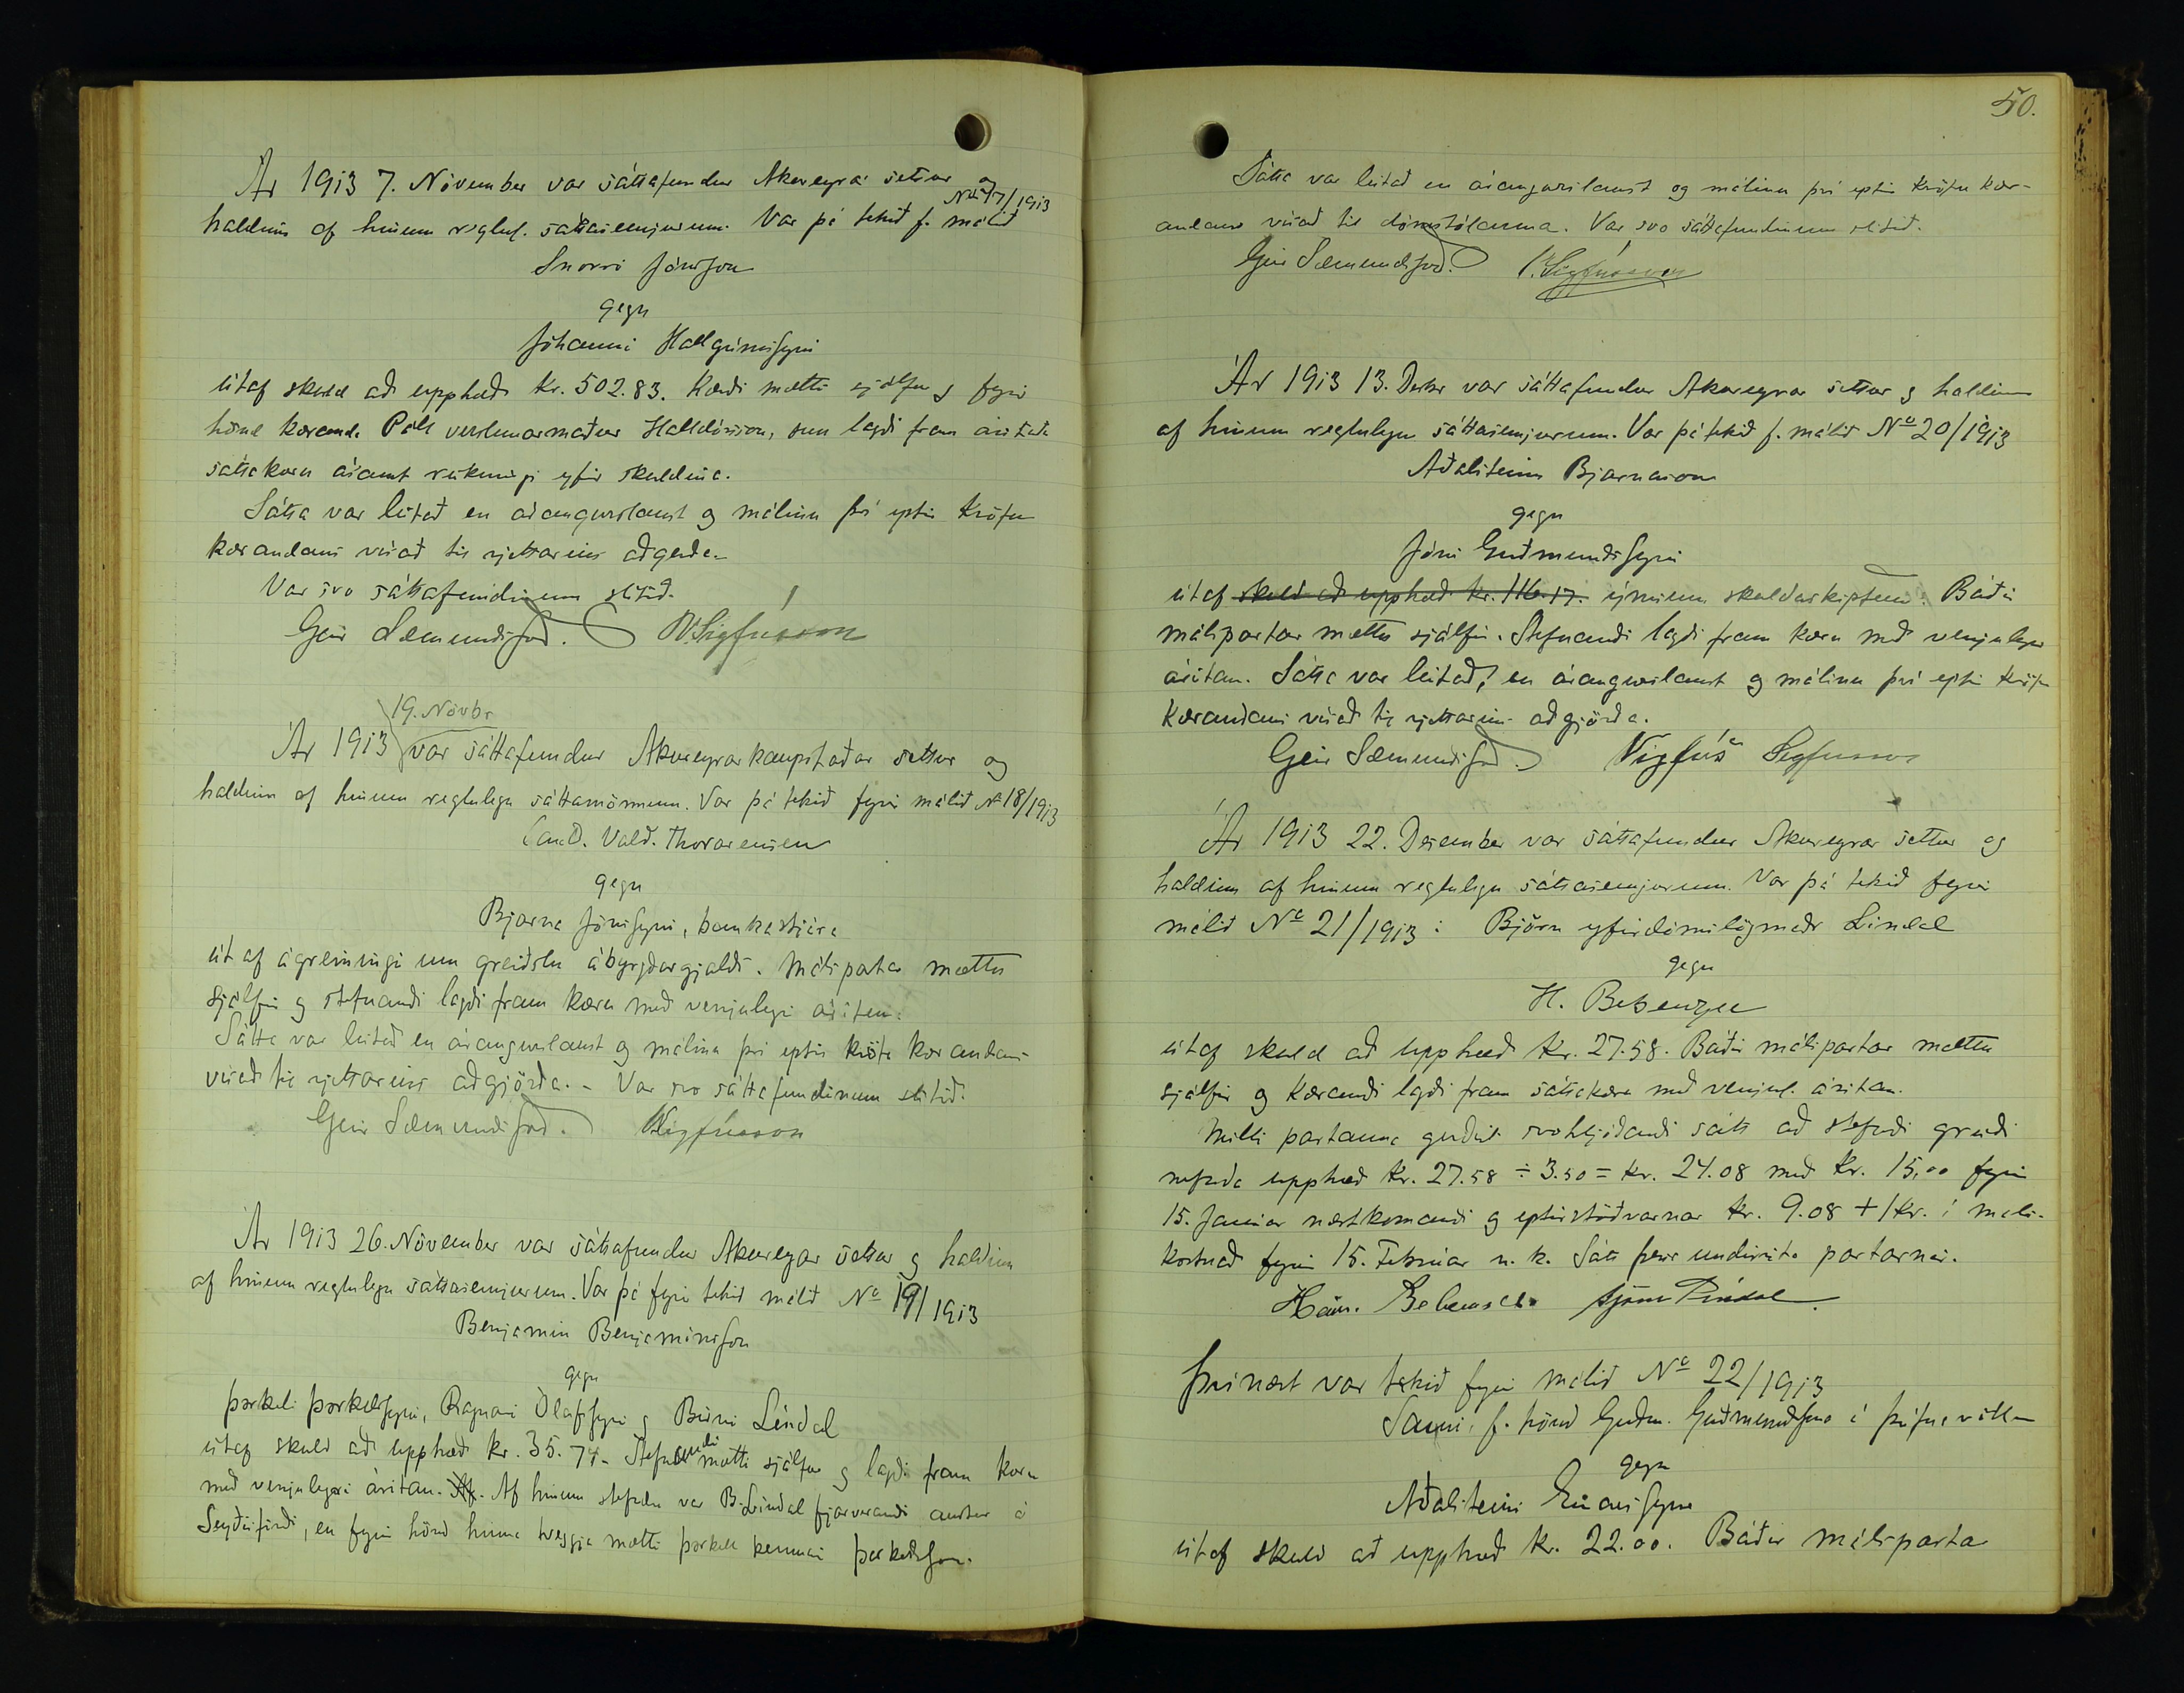 Ár 1913 7. Nóvember var sáttafundur Akureyrar settur og
haldinn af hinum reglul. sáttasemjurum. Var þá tekið f. málið No 17/1913
Snorri Jónsson
gegn
Jóhanni Hallgrímssyni
útaf skuld að upphæð kr. 502.83. Kærði mætti sjálfur g fyrir
hönd kæranda Páll verslunarmaður Halldórsson, sem lagði fram áritaða
sáttakæru ásamt reikningi yfir skuldina.
Sátta var leitað en árangurslaust og málinu því eptir kröfu
kærandans vísað til rjettarins aðgerða
Var svo sáttafundinum slitið.
Geir Sæmundsson. V. Sigfússon
19. Nóvbr
Ár 1913 var sáttafundur Akureyrarkaupstaðar settur og
haldinn af hinum reglulegu sáttamönnum. Var þá tekið fyrir málið No 18/1913
Cand. Vald. Thorarensen
gegn
Bjarna Jónssyni, bankastjóra
út af ágreiningi um greiðslu ábyrgðargjalds. Málspartar mættu
sjálfir g stefnandi lagði fram kæru með venjulegri áritan.
Sátta var leitað en árangurslaust og málinu því eptir kröfu kærandans
vísað til rjettarins aðgjörða. - Var svo sáttafundinum slitið.
Geir Sæmundsson. V Sigfússon
Ár 1913 26. Nóvember var sáttafundur Akureyrar settur g haldinn
af hinum reglulegu sáttasemjurum. Var þá fyrir tekið málið No 19/1913
Benjamín Benjamínsson
gegn
Þorkeli Þorkelssyni, Ragnari Ólafssyni g Birni Líndal
útaf skuld að upphæð kr. 35.74. Stefnandi mætti sjálfur g lagði fram kæru
með venjulegri áritan. Af. Af hinum stefndu var B. Líndal fjarverandi austur á
Seyðisfirði, en fyrir hönd hinna tveggja mætti Þorkell kennari Þorkelsson.
50.
Sátta var leitað en árangurslaust og málinu því eptir kröfu kær-
andans vísað til dómstólanna. Var svo sáttafundinum slitið.
Geir Sæmundsson. V. Sigfússon
Ár 1913 13. Desbr var sáttafundur Akureyrar settur g haldinn
af hinum reglulegu sáttasemjurum. Var þá tekið f. málið No 20/1913
Aðalsteinn Bjarnason
gegn
Jóni Guðmundssyni
útaf skuld að upphæð kr. 116.17. ýmsum skuldaskiptum. Báðir
málspartar mættu sjálfir. Stefnandi lagði fram kæru með venjulegri
áritan. Sátta var leitað, en árangurslaust g málinu því eptir kröfu
kærandans vísað til rjettarins aðgjörða.
Geir Sæmundsson. Vigfús Sigfússon
Ár 1913 22. Desember var sáttafundur Akureyrar settur og
haldinn af hinum reglulegu sáttasemjurum. Var þá tekið fyrir
málið No 21/1913: Björn yfirdómslögmaðr Líndal
gegn
H. Bebensee
útaf skuld að upphæð kr. 27.58. Báðir málspartar mættu
sjálfir g kærandi lagði fram sáttakæru með venjul. áritan.
Milli partanna gerðist svohljóðandi sátt að stefndi greiði
nefnda upphæð kr. 27.58 ÷ 3.50 = kr. 24.08 með kr. 15,00 fyrir
15. Janúar næstkomandi g eptirstöðvarnar kr. 9.08 + 1 kr. í máls-
kostnað fyrir 15. Febrúar n. k. Sátt þessa undirrita partarnir.
H. Bebensee Björn Líndal.
Þvínæst var tekið fyrir málið No 22/1913
Sami, f. hönd Guðm. Guðmundssonar á Þúfnavöllum
gegn
Aðalsteini Einarssyni
útaf skuld að upphæð kr. 22.00. Báðir málspartar